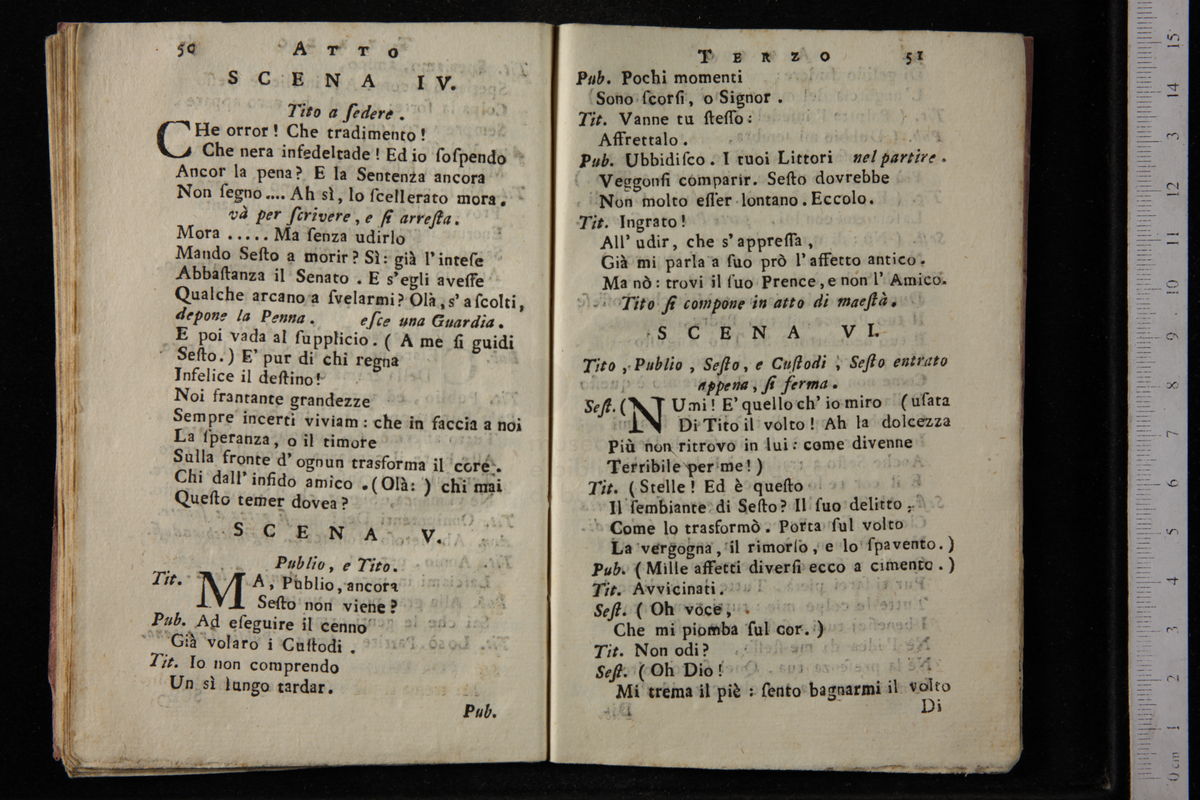 50 ATTO
SCENA IV.
Tito a ſedere.
CHe orror! Che tradimento!
Che nera infedeltade! Ed io ſoſpendo
Ancor la pena? E la Sentenza ancora
Non ſegno.... Ah sì, lo ſcellerato mora.
và per ſcrivere, e ſi arreſta.
Mora ..... Ma ſenza udirlo
Mando Seſto a morir? Sì: già l'inteſe
Abbaſtanza il Senato. E s'egli aveſſe
Qualche arcano a ſvelarmi? Olà, s'aſcolti,
depone la Penna. eſce una Guardia.
E poi vada al ſupplicio. (A me ſi guidi
Seſto.) E' pur di chi regna
Infelice il deſtino!
Noi frantante grandezze
Sempre incerti viviam: che in faccia a noi
La ſperanza, o il timore
Sulla fronte d'ognun trasforma il core.
Chi dall' infido amico.(Olà:) chi mai
Queſto temer dovea?
SCENA V.
Publio, e Tito.
Tit. MA, Publio, ancora
Seſto non viene?
Pub. Ad eſeguire il cenno
Già volaro i Cuſtodi.
Tit. Io non comprendo
Un sì lungo tardar.
Pub.
TERZO 51
Pub. Pochi momenti
Sono ſcorſi, o Signor.
Tit. Vanne tu ſteſſo:
Affrettalo.
Pub. Ubbidiſco. I tuoi Littori nel partire.
Veggonſi comparir. Seſto dovrebbe
Non molto eſſer lontano. Eccolo.
Tit. Ingrato!
All' udir, che s'appreſſa,
Già mi parla a ſuo prò l'affetto antico.
Ma nò: trovi il ſuo Prence, e non l'Amico.
Tito ſi compone in atto di maeſtà.
SCENA VI.
Tito, Publio, Seſto, e Cuſtodi, Seſto entrato
appena, ſi ferma.
Seſt. (NUmi! E' quello ch' io miro (uſata
Di Tito il volto! Ah la dolcezza
Più non ritrovo in lui: come divenne
Terribile per me!)
Tit. (Stelle! Ed è queſto
Il ſembiante di Seſto? Il ſuo delitto,
Come lo trasformò. Porta ſul volto
La vergogna, il rimorſo, e lo ſpavento.)
Pub. (Mille affetti diverſi ecco a cimento.)
Tit. Avvicinati.
Seſt. (Oh voce,
Che mi piomba ſul cor.)
Tit. Non odi?
Seſt. (Oh Dio!
Mi trema il piè: ſento bagnarmi il volto
Di
0 cm 1 2 3 4 5 6 7 8 9 10 11 12 13 14 15